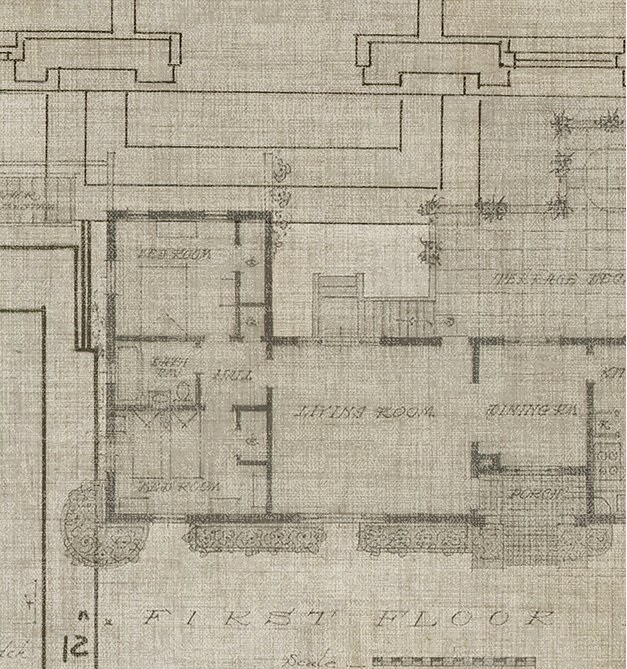 BED ROOM
TERRACE
BATH
RM
HALL
LIVING ROOM
DINING RM
KIT
R
BED ROOM
PORCH
FIRST FLOOR
12
Scale